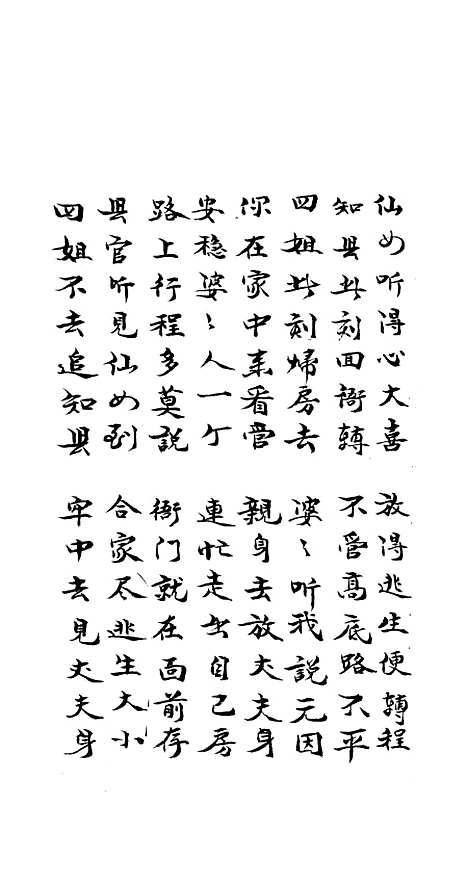 仙女听得心大喜　放得逃生便轉程
知县此刻回衙轉　不管高底路不平
四姐此刻帰房去　婆〻听我說元因
你在家中来看管　親身去放丈夫身
安穏婆〻人一个　連忙走出自己房
路上行程多莫説　衙门就在面前存
县官听見仙女到　合家尽逃生大小
四姐不去追知县　牢中去見丈夫身